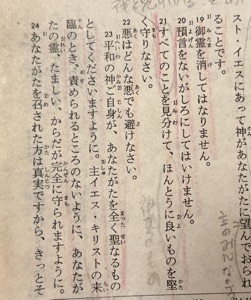 スト・イエスにあって神があなたがたに望んでお
ることです。
19 御霊を消してはなりません。
20 預言をないがしろにしてはいけません。
21 すべてのことを見分けて、ほんとうに良いものを堅
く守りなさい。
22 悪はどんな悪でも避けなさい。
23 平和の神ご自身が、あなたがたを全く聖なるもの
としてくださいますように。主イエス・キリストの来
臨のとき、責められるところのないように、あなたが
たの霊、たましい、からだが完全に守られますように。
24 あなたがたを召された方は真実ですから、きっとそ